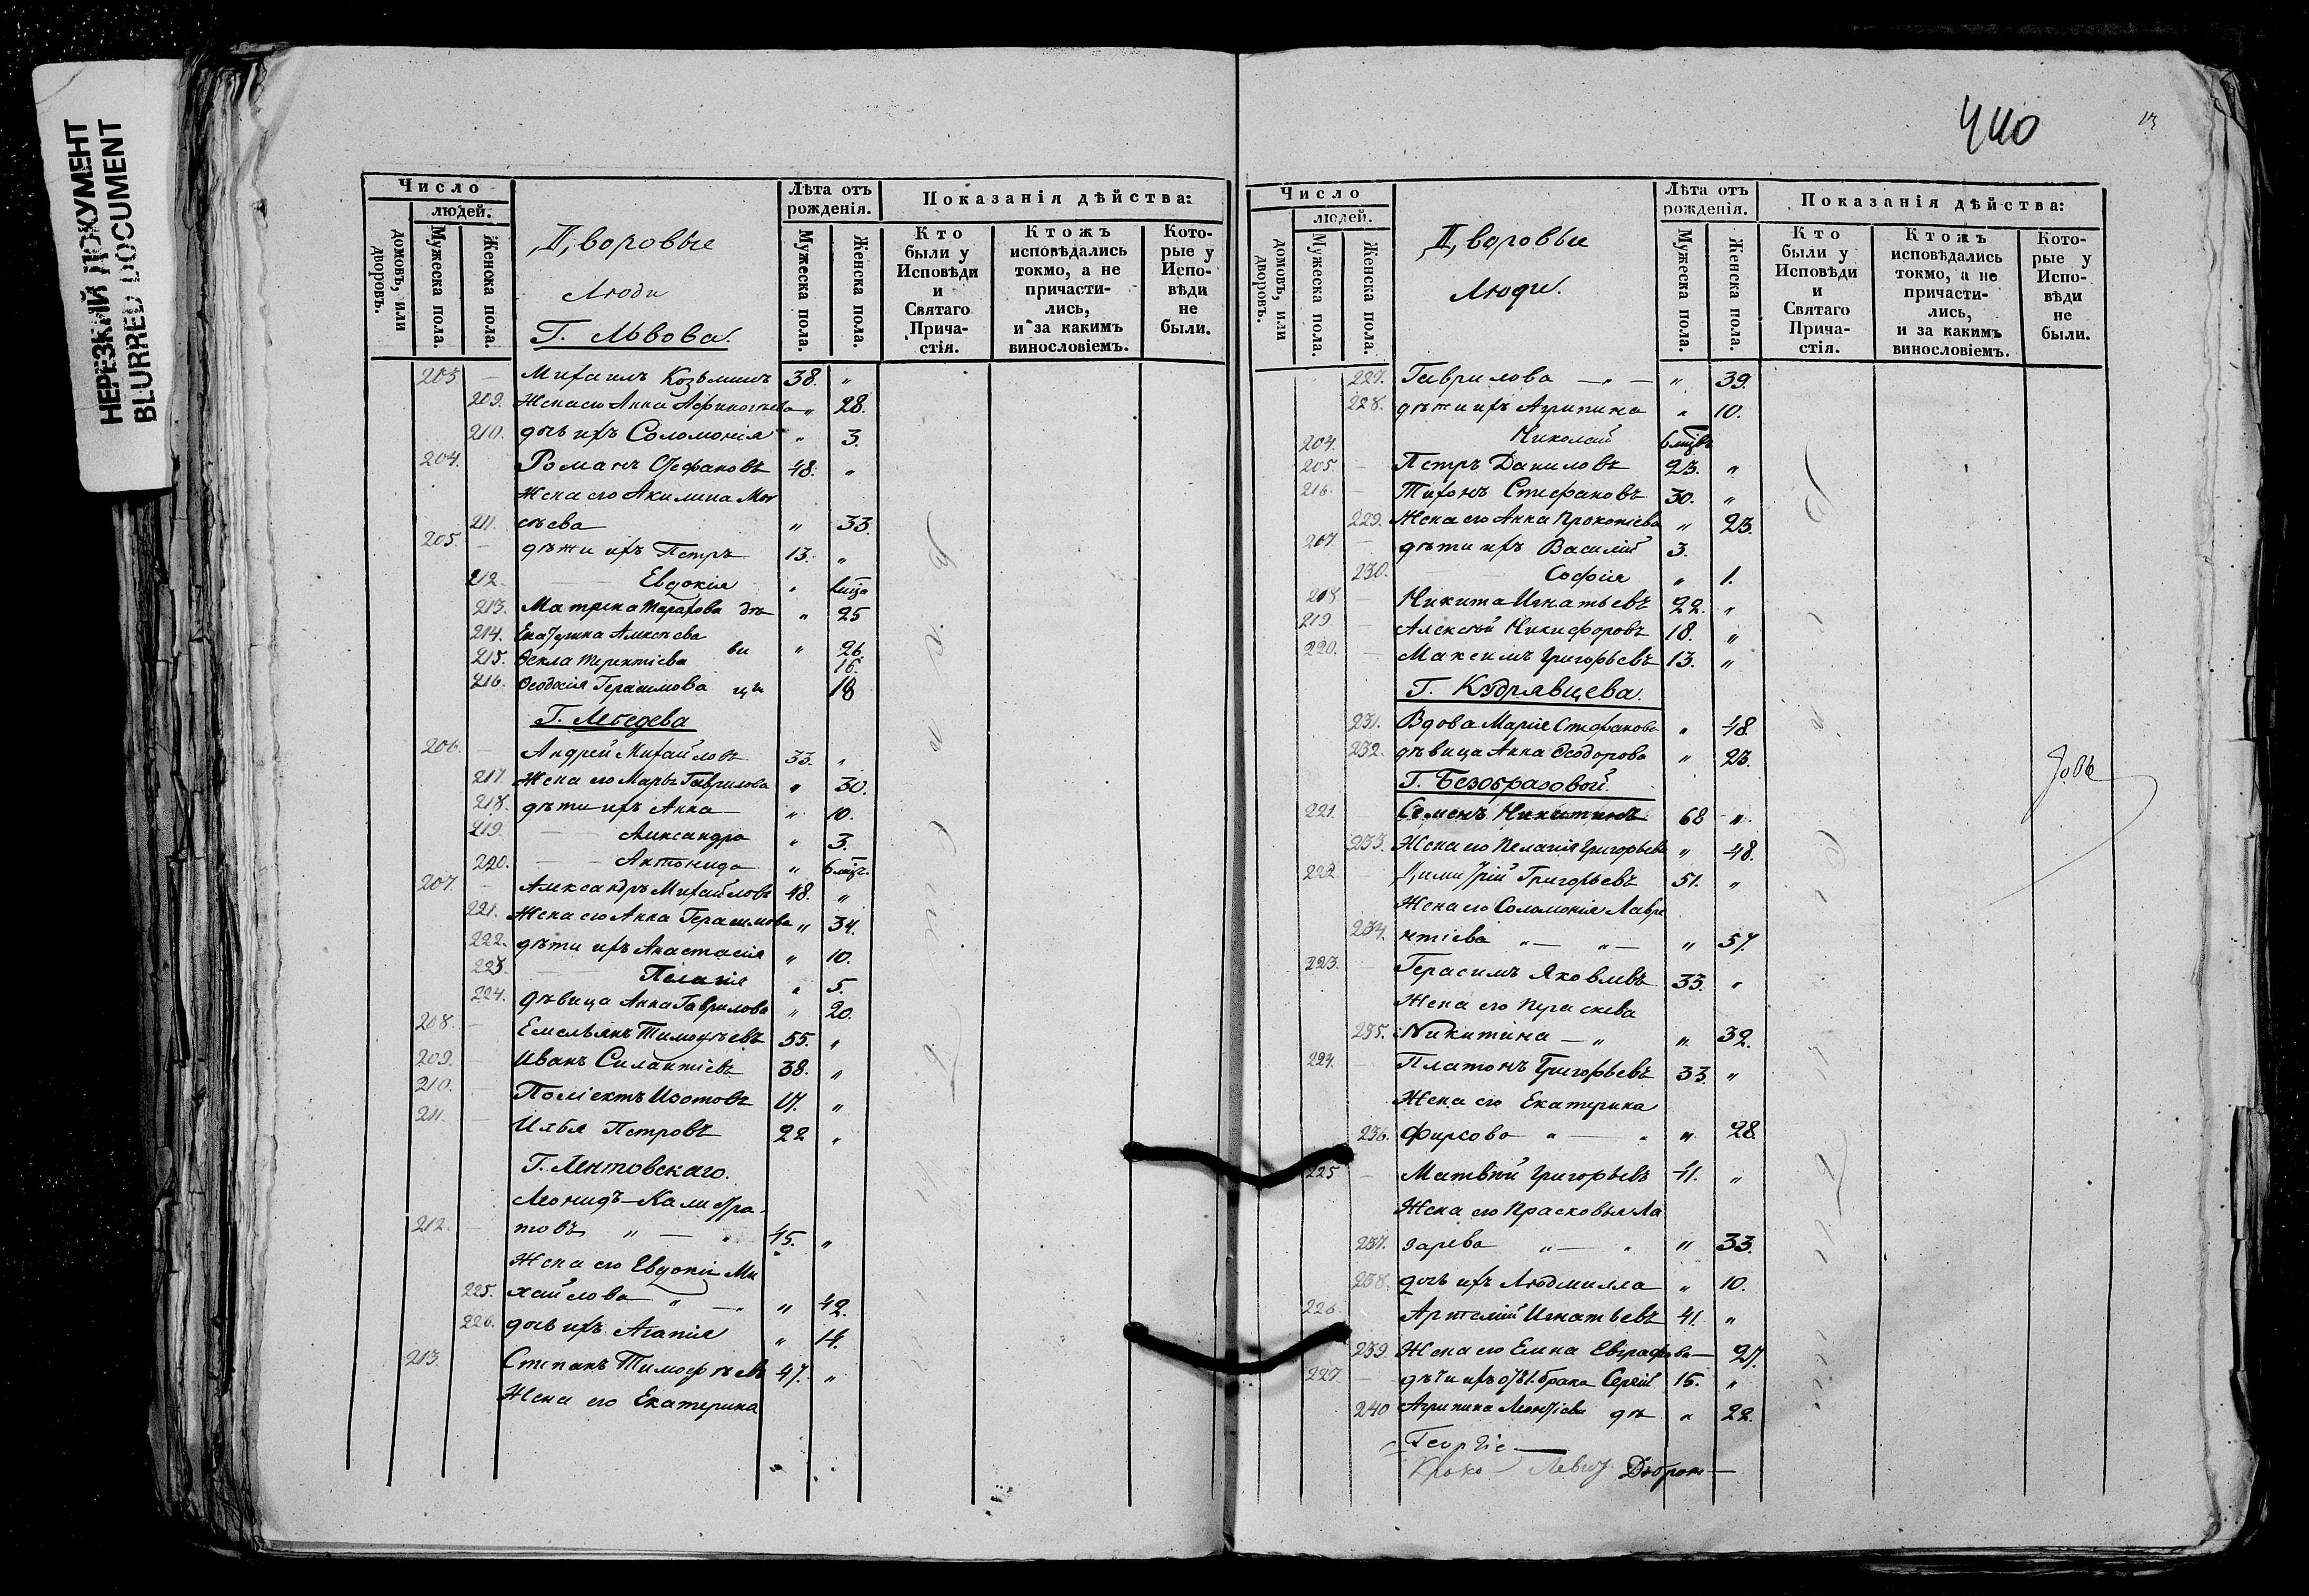 НЕРЕЗКИЙ ДОКУМЕНТ
BLURRED DOCUMENT
Число
людей.
домовъ, или дворовъ.
Мужеска пола.
Женска пола.
Дворовые
Люди
Г. Львова.
Лѣта отъ рожденія.
Мужеска пола.
Женска пола.
Показанія дѣйства:
Кто были у Исповѣди и Святаго Причастія.
Ктожъ исповѣдались токмо, а не причастились, и за какимъ винословіемъ.
Которые у Исповѣди не были.
203 — Михаилъ Козьминъ 38. "
209. Жена его Анна Афиногѣева " 28.
210. дочь ихъ Соломонія " 3.
204. Романъ Стефановъ 48. "
Жена его Акилина Мои
211. сѣева " 33.
205. — дѣти ихъ Петръ 13. "
212. Евдокія "
213. Матрена Тарахова дѣ " 25
214. Екатерина Алексѣева ви " 26.
215. Ѳекла Терентіева 16
216. Ѳеодосія Герасимова цы 18
Г. Лебедева
206. — Андрей Михайловъ 33. "
217. Жена его Марья Гаврилова " 30.
218. дѣти ихъ Анна " 10.
219. Александра " 3.
220. Антонида " 6 мѣс.
207. — Александръ Михайловъ 48. "
221. Жена его Анна Герасимова " 34.
222. дѣти ихъ Анастасія " 10.
223. Пелагія " 5.
224. дѣвица Анна Гаврилова " 20.
208. — Емельянъ Тимофѣевъ 55. "
209. — Иванъ Силантіевъ 38. "
210. — Поліектъ Изотовъ 17. "
211. — Илья Петровъ 22 "
Г. Лентовскаго.
Леонидъ Калистра-
212. — товъ " — " 45. "
Жена его Евдокія Ми
225. хайлова " — " " 42.
226. дочь ихъ Агапія " 14.
213. Степанъ Тимофѣевъ 47. "
Жена его Екатерина
440
Число
людей.
домовъ, или дворовъ.
Мужеска пола.
Женска пола.
Дворовые
Люди.
Лѣта отъ рожденія.
Мужеска пола.
Женска пола.
Показанія дѣйства:
Кто были у Исповѣди и Святаго Причастія.
Ктожъ исповѣдались токмо, а не причастились, и за какимъ винословіемъ.
Которые у Исповѣди не были.
227. Гаврилова — " — " 39.
228. дѣти ихъ Агрипина " 10.
204. Николай 6 мѣс.
205. — Петръ Даниловъ 23. "
216. — Тихонъ Стефановъ 30. "
229. Жена его Анна Прокопіева " 23.
207. — дѣти ихъ Василій 3.
230. Софія " 1.
218 — Никита Игнатьевъ 22. "
219. — Алексѣй Никифоровъ 18. "
220. — Максимъ Григорьевъ 13. "
Г. Кудрявцева.
231. Вдова Марія Стефанова " 48.
232. дѣвица Анна Ѳеодорова " 23.
Г. Безобразовой.
221. — Семенъ Никитинъ 68 "
233. Жена его Пелагія Григорьева " 48.
222. — Димитрій Григорьевъ 51. "
Жена его Соломонія Лавре
234. нтіева " — " — " 57.
223. — Герасимъ Яковлевъ 33. "
Жена его Параскева
235. Никитина — " " 32.
224. — Платонъ Григорьевъ 33. "
Жена его Екатерина
236. Фирсова " — " " 28.
225 — Матвѣй Григорьевъ 41. "
Жена его Прасковья Ла
237. зарева " — " " 33.
238. дочь ихъ Людмилла " 10.
226. Артемій Игнатьевъ 41. "
239. Жена его Елена Евграфова — 27.
227. — дѣти ихъ отъ 1. брака Сергій 15. "
240 Агрипина Леонтіева дѣ " 22.
Георгіе